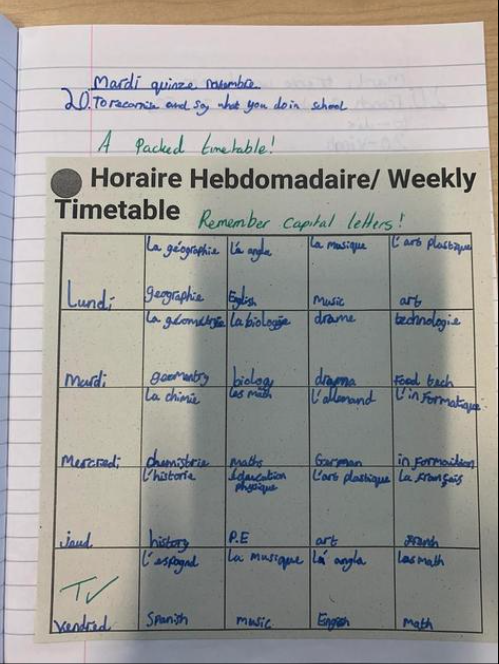 Mardi quinze novembre
20. To recornise and say what you do in school
A Packed timetable!
Horaire Hebdomadaire/ Weekly
Timetable
Remember capital letters!
La géographie L'a angla La musique L'art plastique
Lundi geographie English music art
La géométrie la biologie drame technologie
mardi geomentry biology drama Food tech
La chimie les math L'allemand L'informatique
Mercredi chemistrie maths German in formaition
l'histoire éducation physique L'art plastique La français
jeud history P.E art French
l'espagnd La musique L'a angla Les math
TV
vendred Spanish music English math